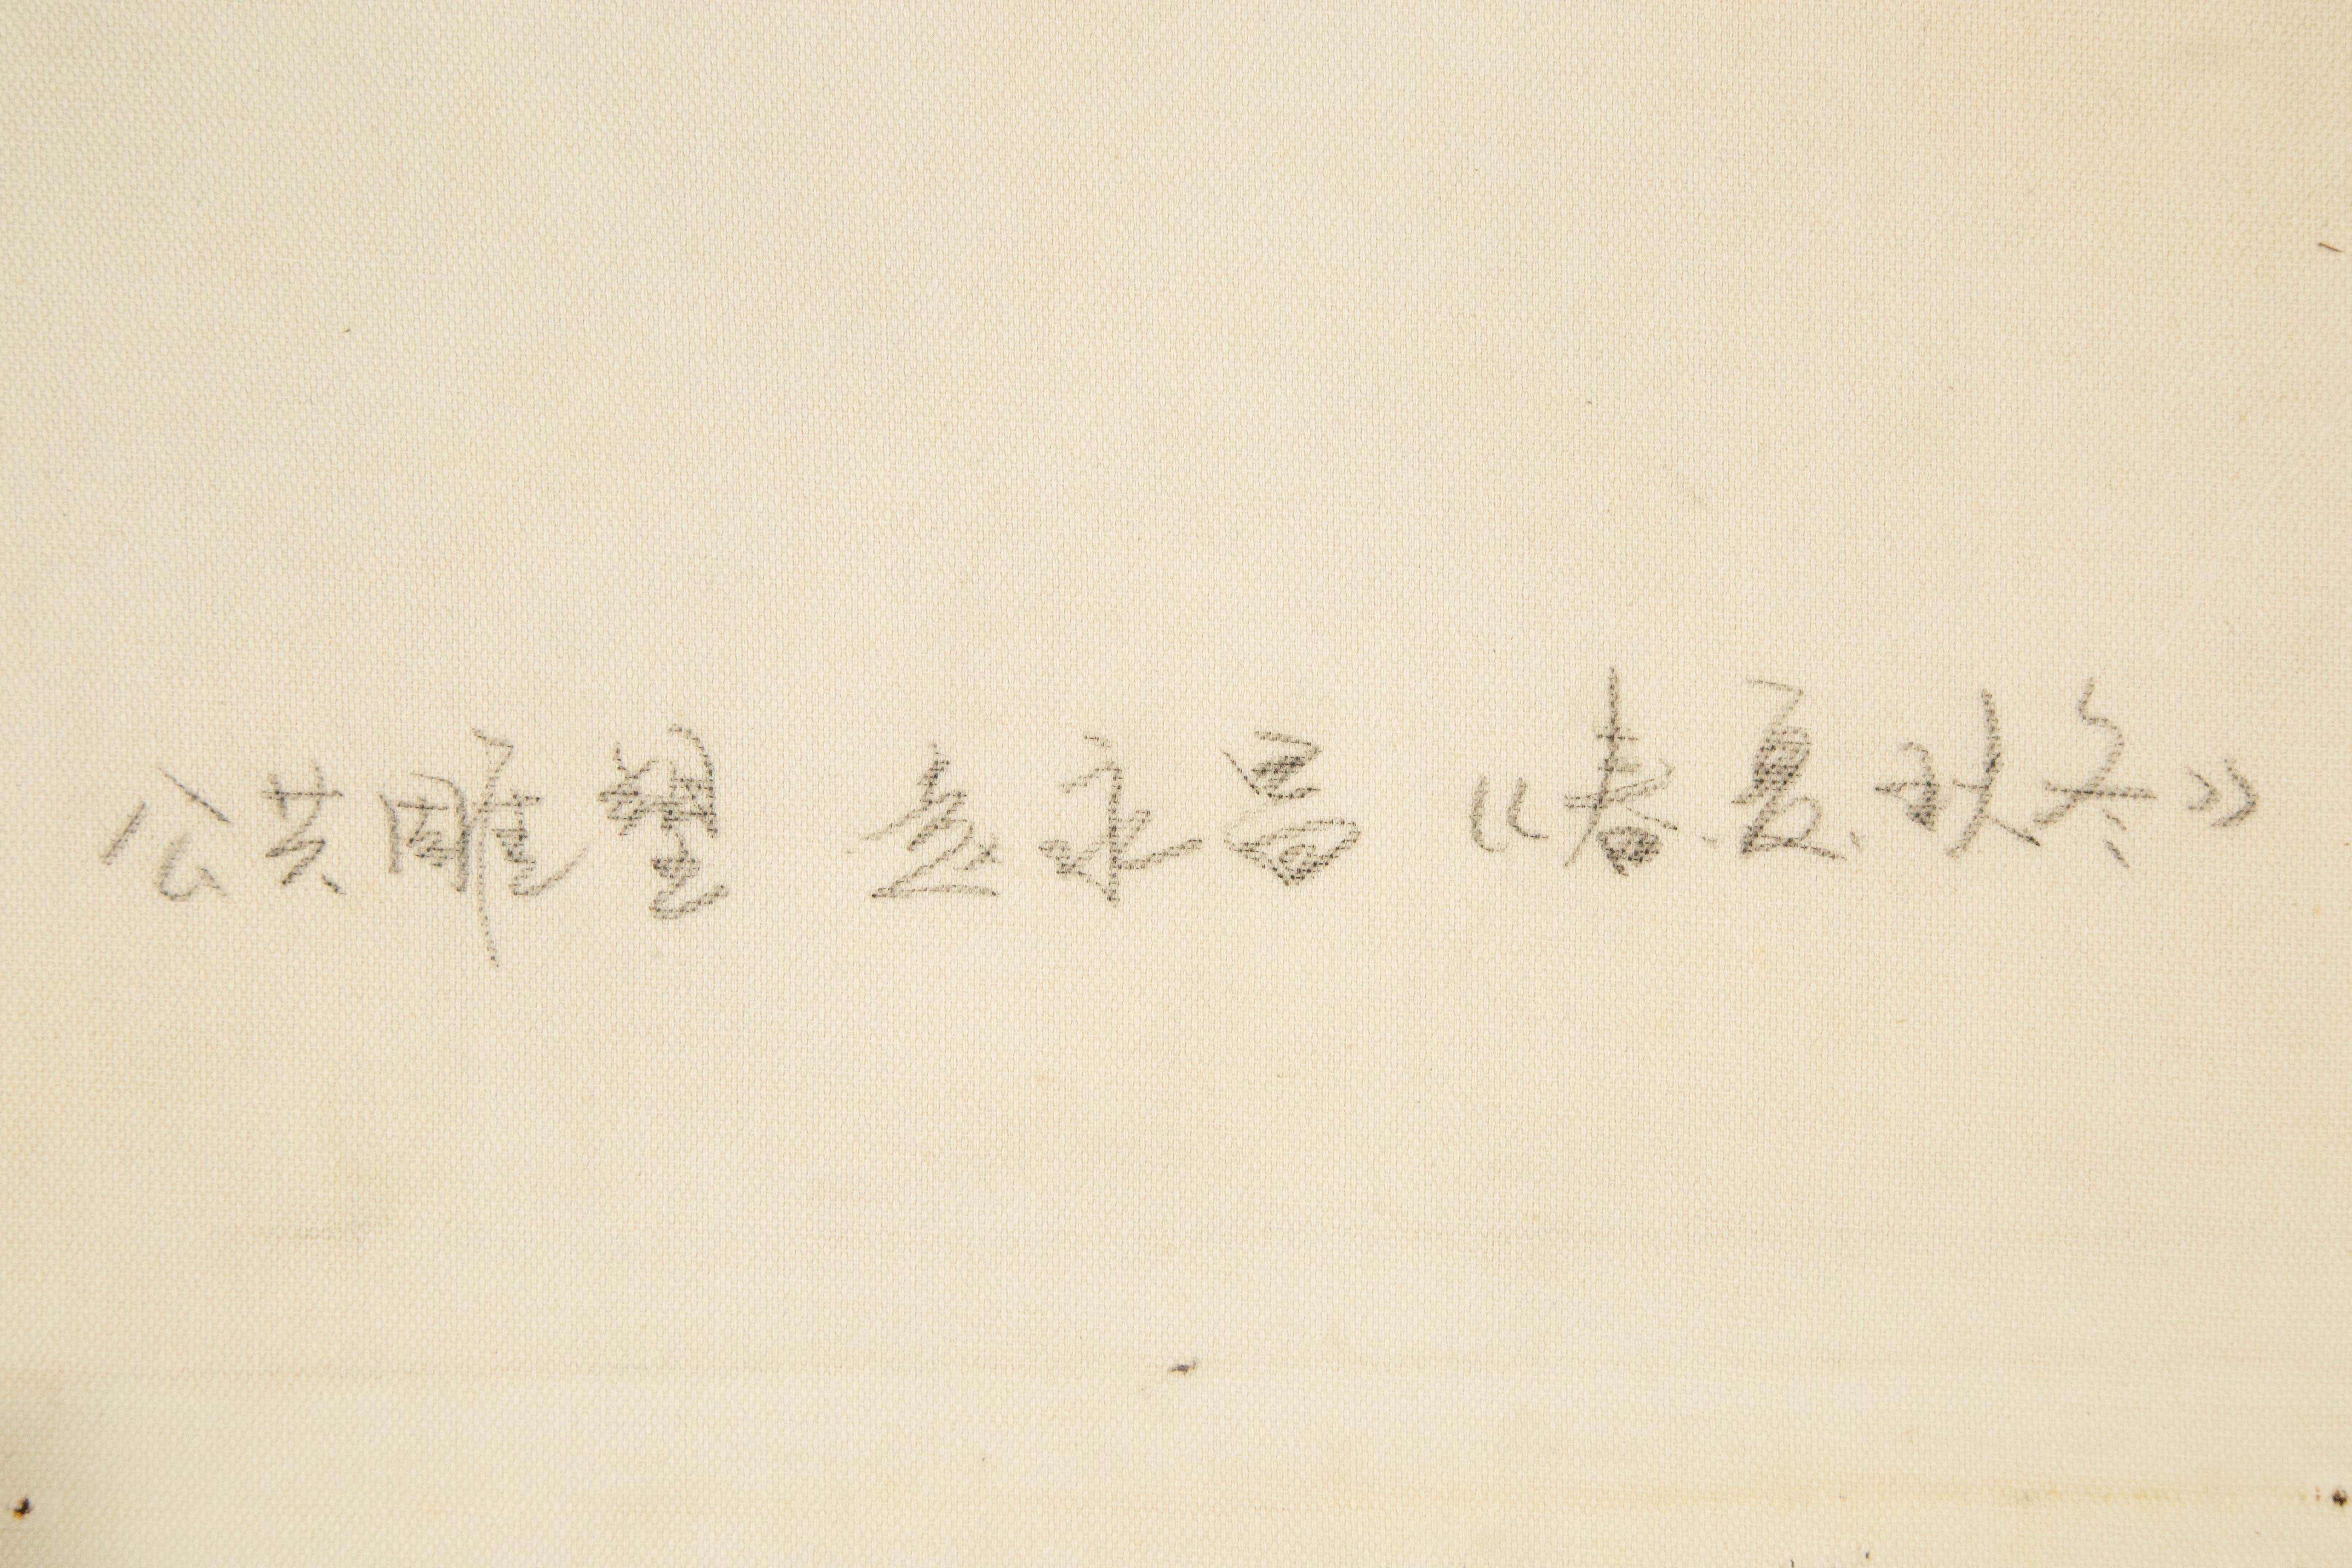 公共雕塑 孟永昌 《春.夏.秋冬》